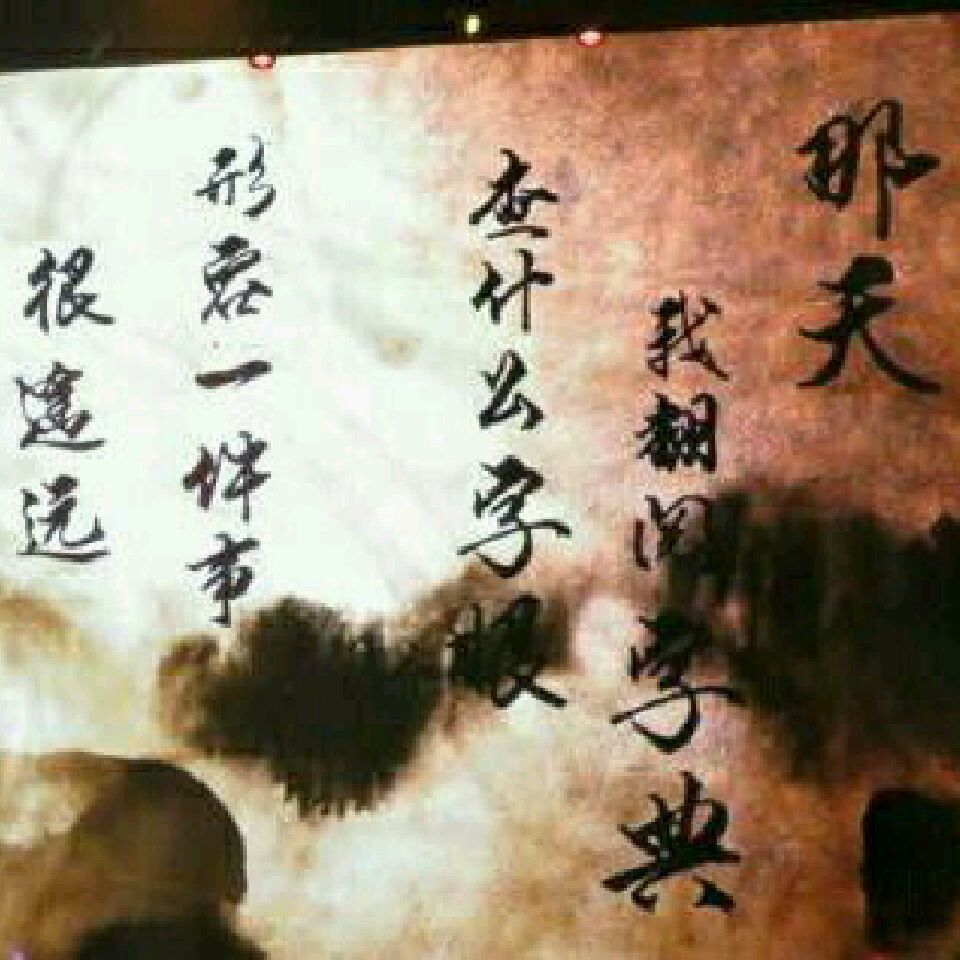 那天
我翻阅字典
查什么字眼
形容一件事
很遥远